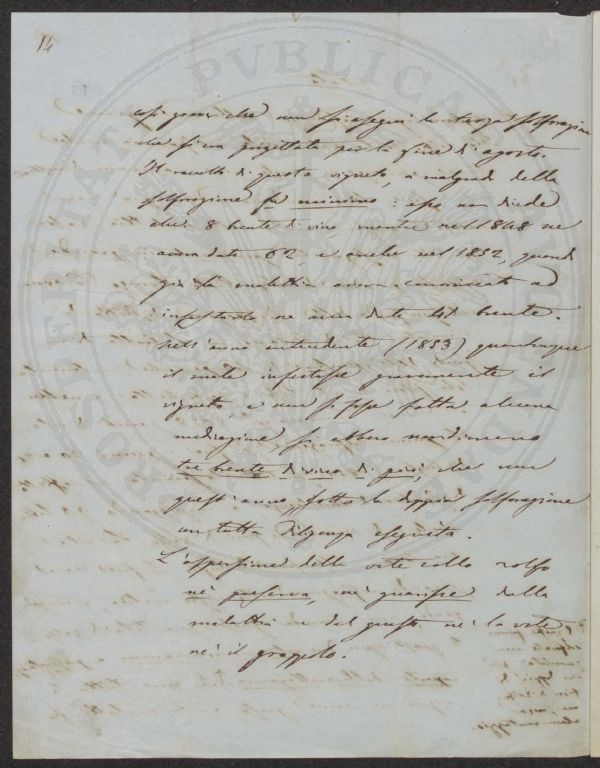 14
così grave che non si eseguì la terza solforazione
che si era progettata per la fine di agosto.
Il raccolto di questo vigneto, a malgrado della
solforazione fu minimo: esso non diede
che 8 brente di vino mentre nel 1848 ne
aveva date 62 e anche nel 1852, quando
già la malattia aveva cominciato ad
infestarlo ne aveva date 41 brente.
Nell'anno antecedente (1853) quantunque
il male infestasse gravemente il
vigneto, e non si fosse fatta alcuna
medicazione, si ebbero nondimeno
tre brente di vino di più, che non
quest'anno, sotto la doppia solforazione
con tutta diligenza eseguita.
L'aspersione della vite collo zolfo
nè preserva, nè guarisce dalla
malattia e dal guasto nè la vite
nè il grappolo.
PROSPERITATI PVBLICAE AVGENDAE